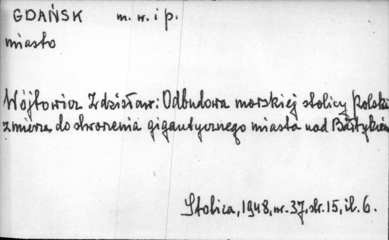 GDAŃSK m. w. i p.
miasto
Wójtowicz Zdzisław: Odbudowa morskiej stolicy Polski
zmierza do stworzenia gigantycznego miasta nad Bałtykiem
Stolica, 1948, nr. 37, str. 15, il. 6.